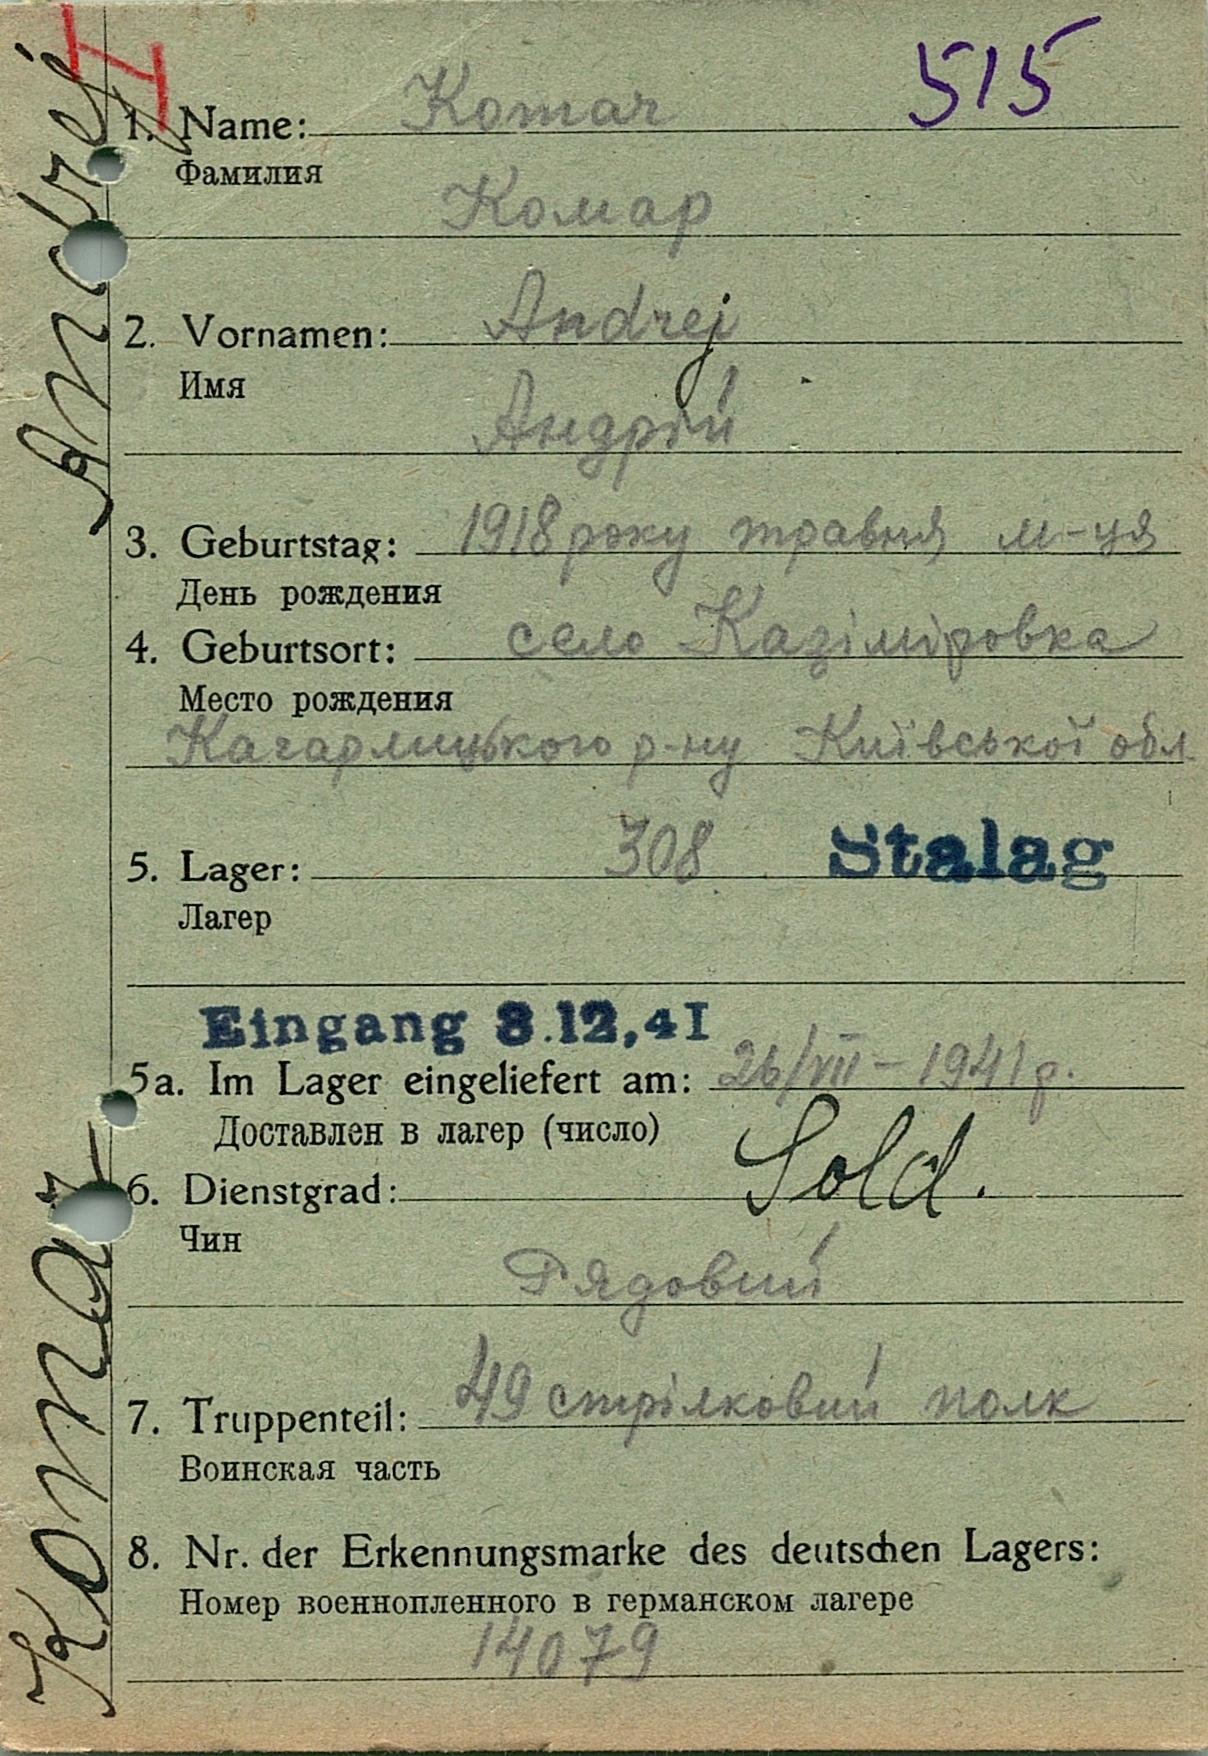 Andrej
Komar
515
1. Name: Komar
Фамилия
Комар
2. Vornamen: Andrej
Имя
Андрій
3. Geburtstag: 1918 року травня м-ця
День рождения
4. Geburtsort: село Казіміровка
Место рождения
Кагарлицького р-ну Київської обл.
5. Lager: 308 Stalag
Лагер
Eingang 8.12.41
5a. Im Lager eingeliefert am: 26/VII – 1941 р.
Доставлен в лагер (число)
6. Dienstgrad: Sold.
Чин
Рядовий
7. Truppenteil: 49 стрілковий полк
Воинская часть
8. Nr. der Erkennungsmarke des deutschen Lagers:
Номер военнопленного в германском лагере
14079